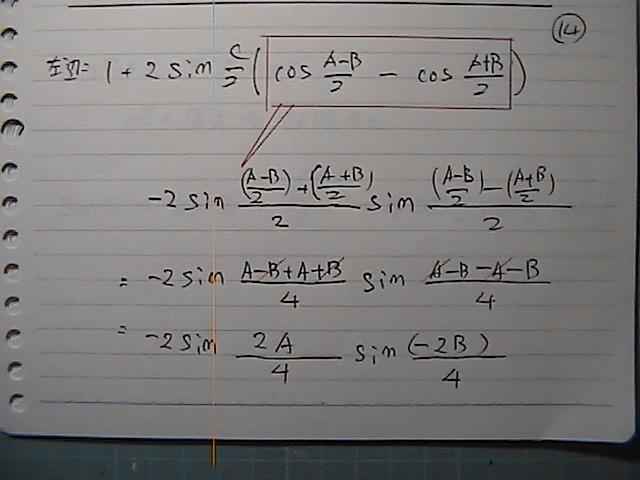 ⑭
左辺= 1 + 2 sin C/2 ( cos A-B/2 - cos A+B/2 )
-2 sin (A-B/2)+(A+B/2)/2 sin (A-B/2)-(A+B/2)/2
= -2 sin A-B+A+B/4 sin A-B-A-B/4
= -2 sin 2A/4 sin (-2B)/4